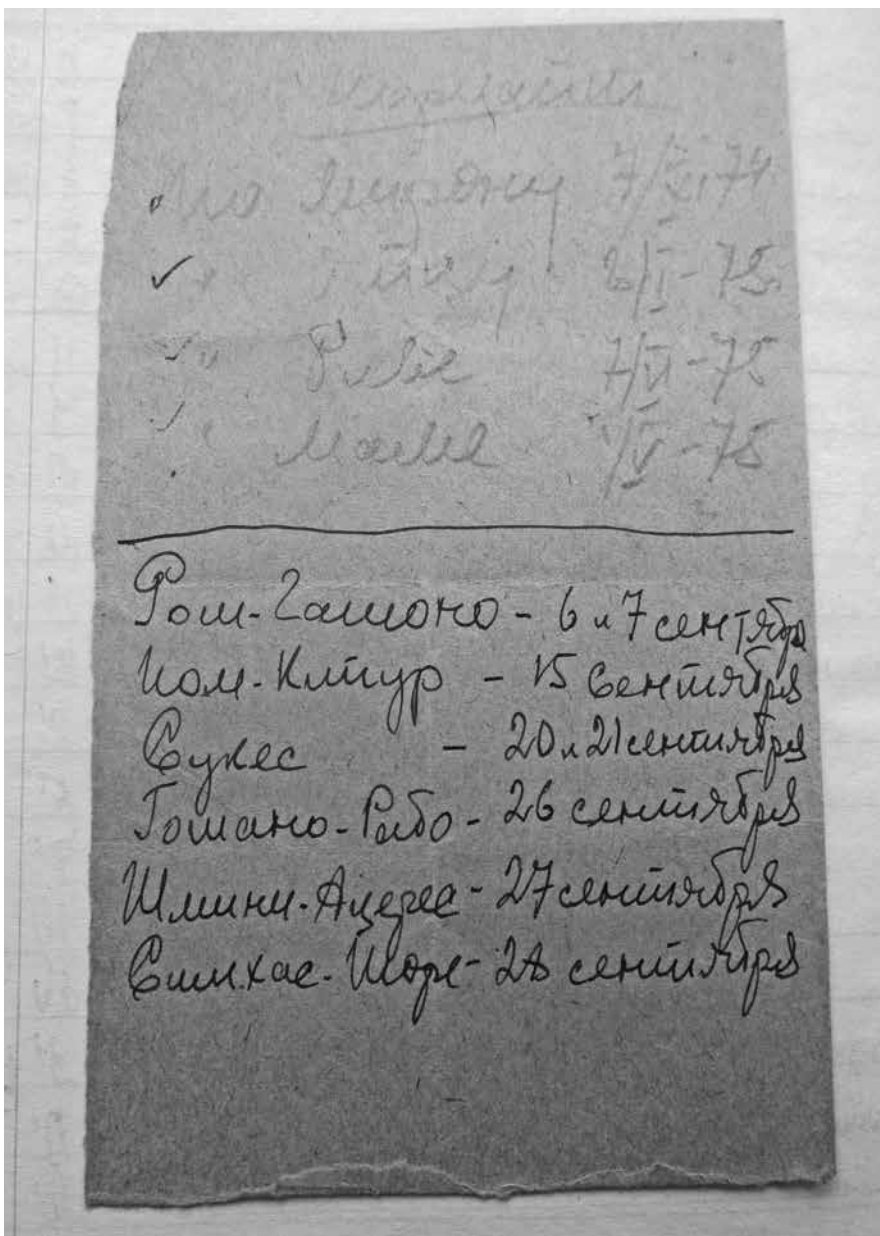 По 7/XI-74
" 2/I-75
" Риве 7/VI-75
" V-75
Рош-Гашоно - 6 и 7 сентября
Иом-Кипур - 15 сентября
Сукес - 20 и 21 сентября
Гошано-Рабо - 26 сентября
Шмини-Ацерес - 27 сентября
Симхас-Торе - 28 сентября